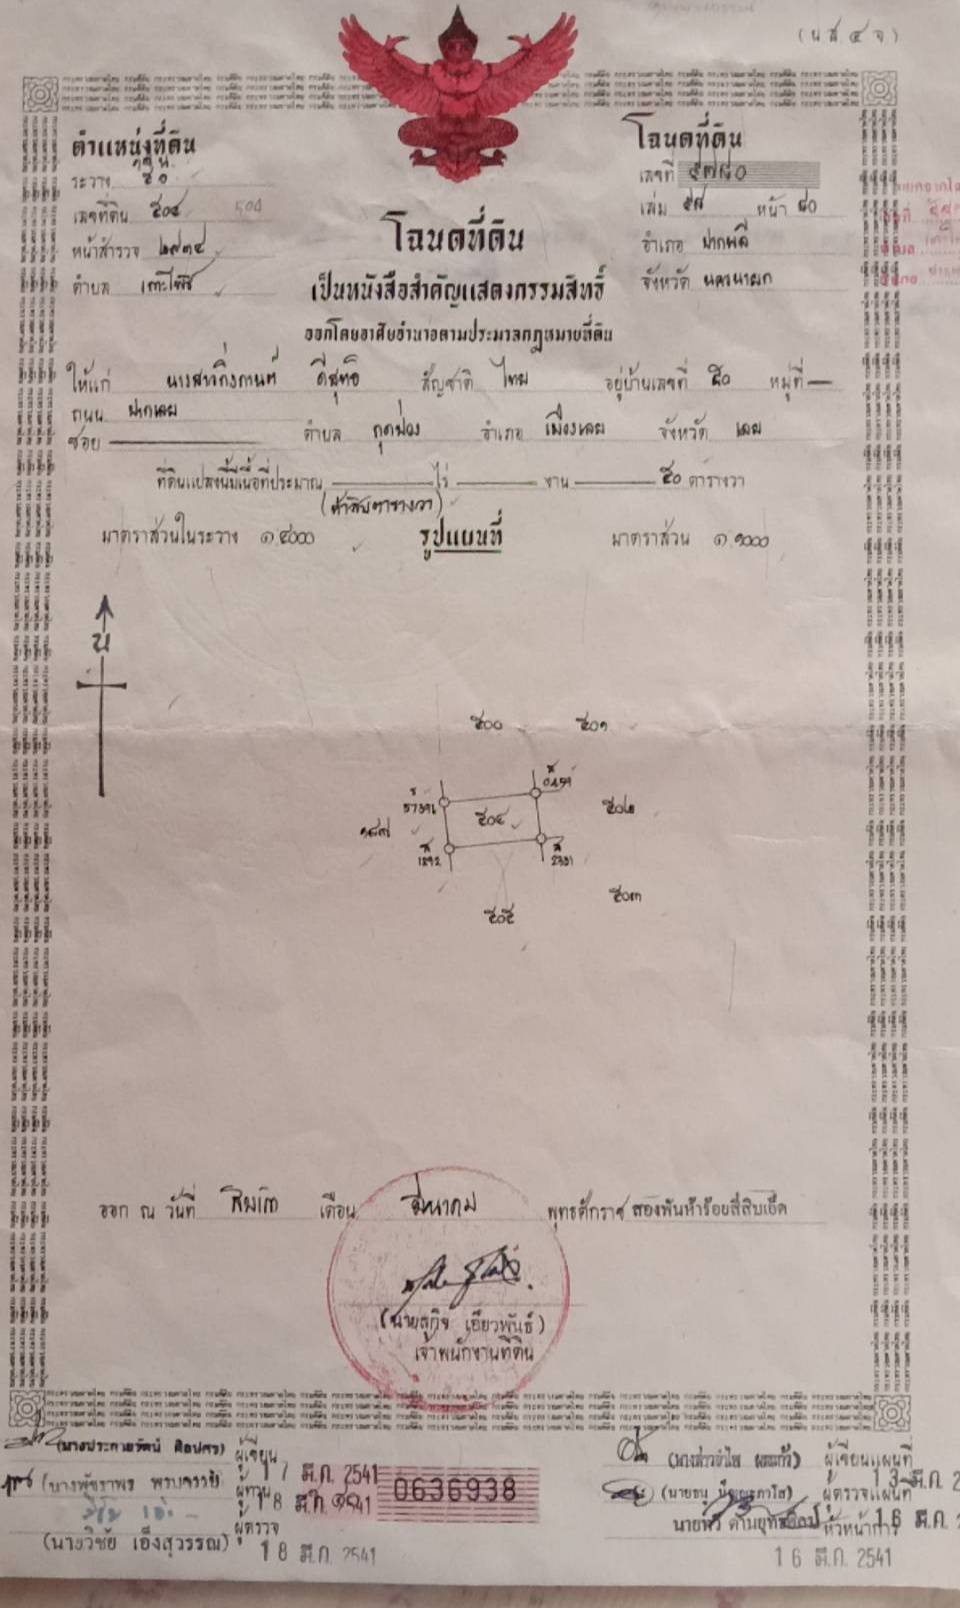 (น.ส. ๔ จ)
ตำแหน่งที่ดิน
ระวาง
เลขที่ดิน ๕๐๔ 504
หน้าสำรวจ ๒๙๓๔
ตำบล เกาะโพธิ์
โฉนดที่ดิน
เลขที่ ๕๗๘๐
เล่ม ๕๘ หน้า ๘๐
อำเภอ ปากพลี
จังหวัด นครนายก
โฉนดที่ดิน
เป็นหนังสือสำคัญแสดงกรรมสิทธิ์
ออกโดยอาศัยอำนาจตามประมวลกฎหมายที่ดิน
ให้แก่ นางสาวกิ่งกานต์ ดีสุทธิ สัญชาติ ไทย อยู่บ้านเลขที่ ๕๐ หมู่ที่ —
ถนน
ซอย — ตำบล กุดป่อง อำเภอ เมืองเลย จังหวัด เลย
ที่ดินแปลงนี้มีเนื้อที่ประมาณ — ไร่ — งาน — ๕๐ ตารางวา
(ห้าสิบตารางวา)
มาตราส่วนในระวาง ๑:๔๐๐๐ รูปแผนที่ มาตราส่วน ๑:๑๐๐๐
น
๕๐๐ ๕๐๑
๕๐๔ ๕๐๒
๕๐๓
๕๐๕
ออก ณ วันที่ สิบเก้า เดือน มีนาคม พุทธศักราช สองพันห้าร้อยสี่สิบเอ็ด
(นายสุกิจ เอี่ยวพันธ์)
เจ้าพนักงานที่ดิน
(นางประกายรัตน์ ศิลปศร) ผู้เขียน
17 มี.ค. 2541
(นางพัชราพร) ผู้ทาน
18 มี.ค. 2541
(นายวิชัย เอ็งสุวรรณ) ผู้ตรวจ
18 มี.ค. 2541
0636938
ผู้เขียนแผนที่
13 มี.ค.
ผู้ตรวจแผนที่
หัวหน้าการ
16 มี.ค.
16 มี.ค. 2541